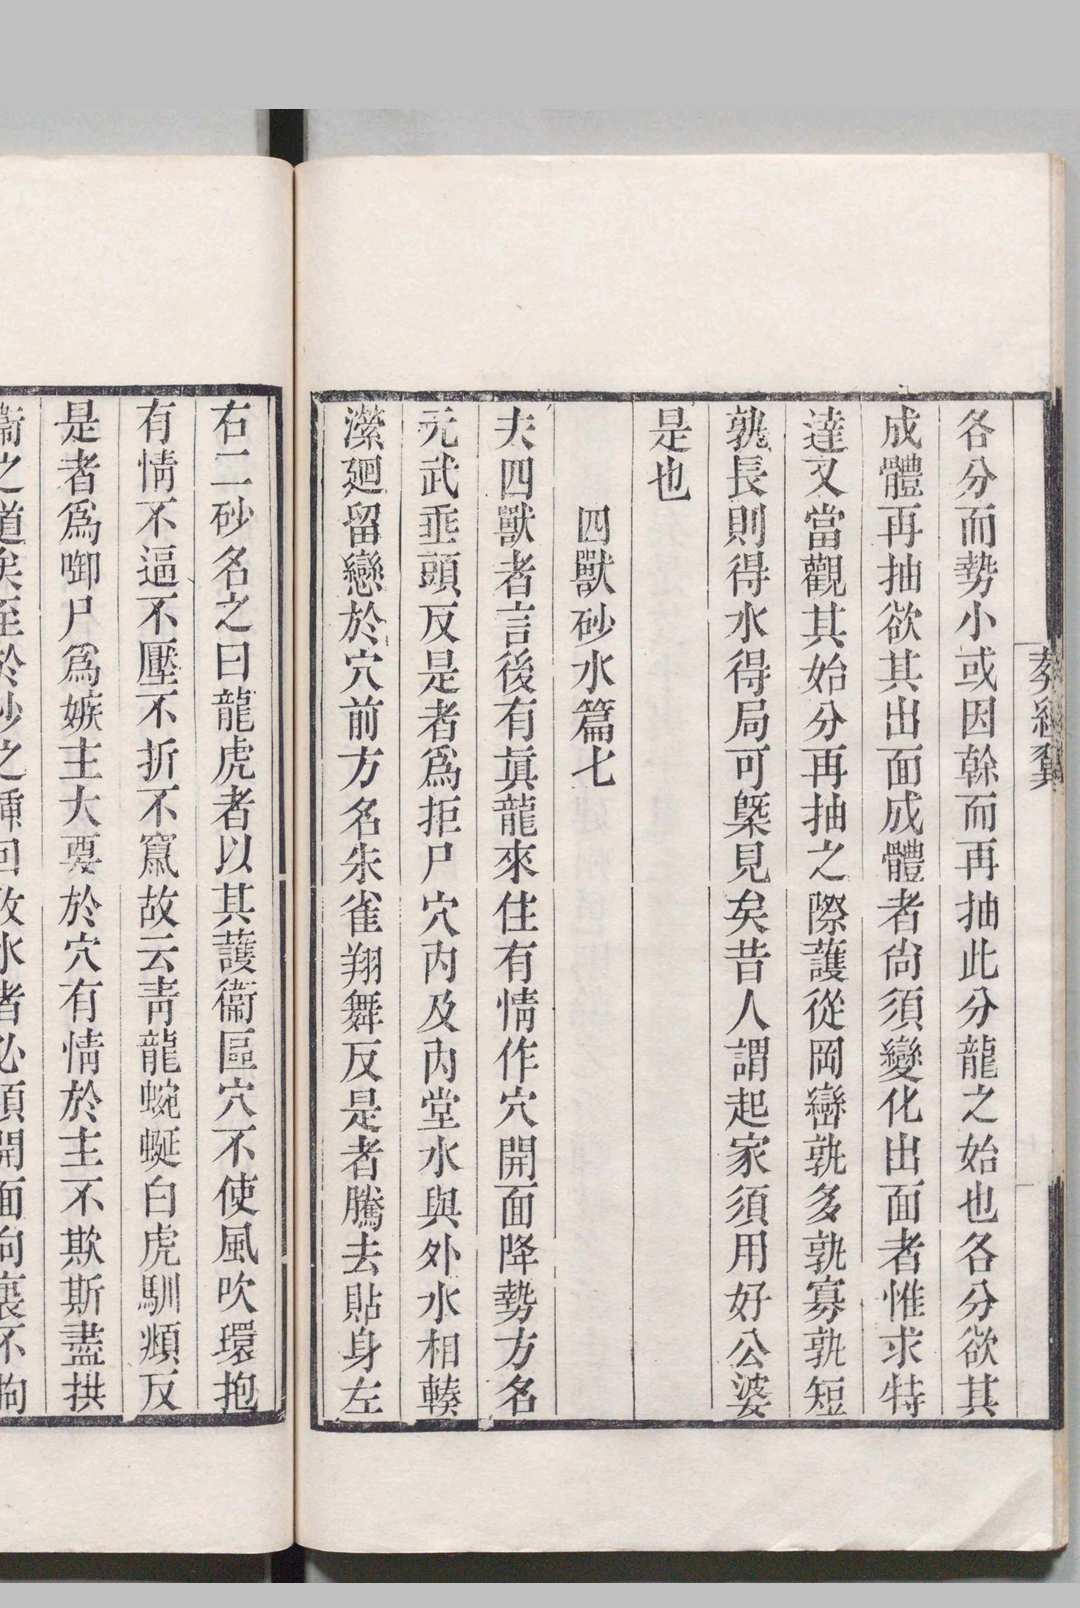 葬經翼
各分而勢小或因榦而再抽此分龍之始也各分欲其
成體再抽欲其出面成體者尙須變化出面者惟求特
達又當觀其始分再抽之際護從岡巒孰多孰寡孰短
孰長則得水得局可槩見矣昔人謂起家須用好公婆
是也
四獸砂水篇七
夫四獸者言後有眞龍來住有情作穴開面降勢方名
元武垂頭反是者爲拒尸穴內及內堂水與外水相輳
瀠廻留戀於穴前方名朱雀翔舞反是者騰去貼身左
右二砂名之曰龍虎者以其護衞區穴不使風吹環抱
有情不逼不壓不折不竄故云靑龍蜿蜒白虎馴頫反
是者爲啣尸爲嫉主大要於穴有情於主不欺斯盡拱
衞之道矣至於砂之種回收水者必須開面向裏不拘